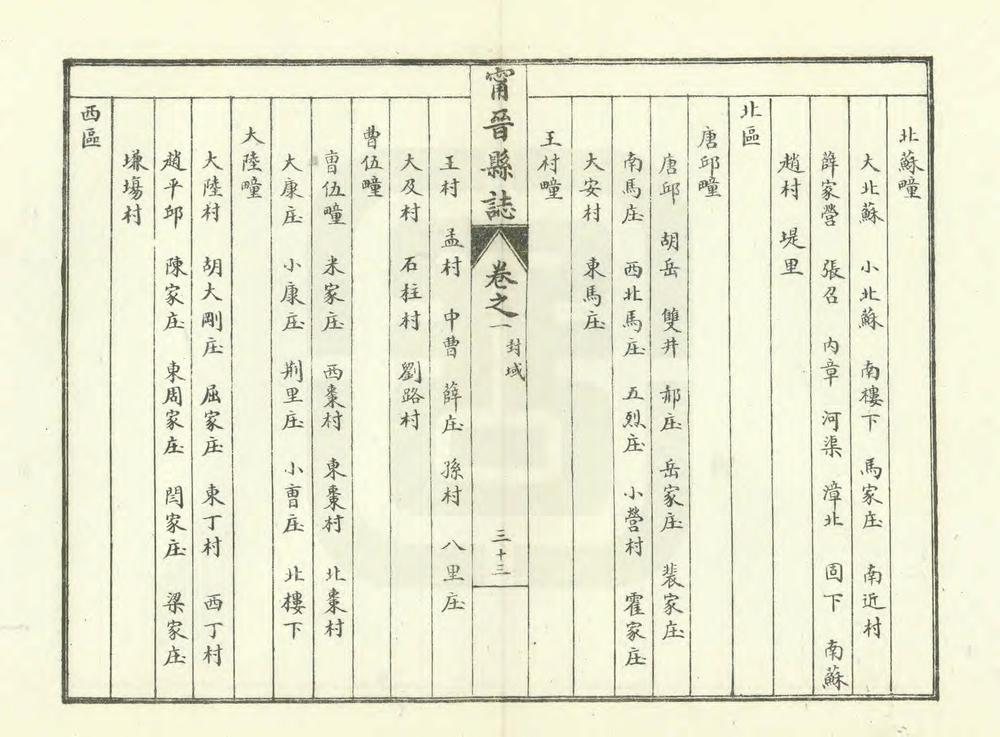 北蘇疃
大北蘇 小北蘇 南樓下 馬家庄 南近村
薛家營 張召 內章 河渠 漳北 固下 南蘇
趙村 堤里
北區
唐邱疃
唐邱 胡岳 雙井 郝庄 岳家庄 裴家庄
南馬庄 西北馬庄 五烈庄 小營村 霍家庄
大安村 東馬庄
王村疃
甯晉縣誌 卷之一 封域 三十三
王村 孟村 中曹 薛庄 孫村 八里庄
大及村 石柱村 劉路村
曹伍疃
曹伍疃 米家庄 西棗村 東棗村 北棗村
大康庄 小康庄 荆里庄 小曹庄 北樓下
大陸疃
大陸村 胡大剛庄 屈家庄 東丁村 西丁村
趙平邱 陳家庄 東周家庄 閆家庄 梁家庄
塚塲村
西區